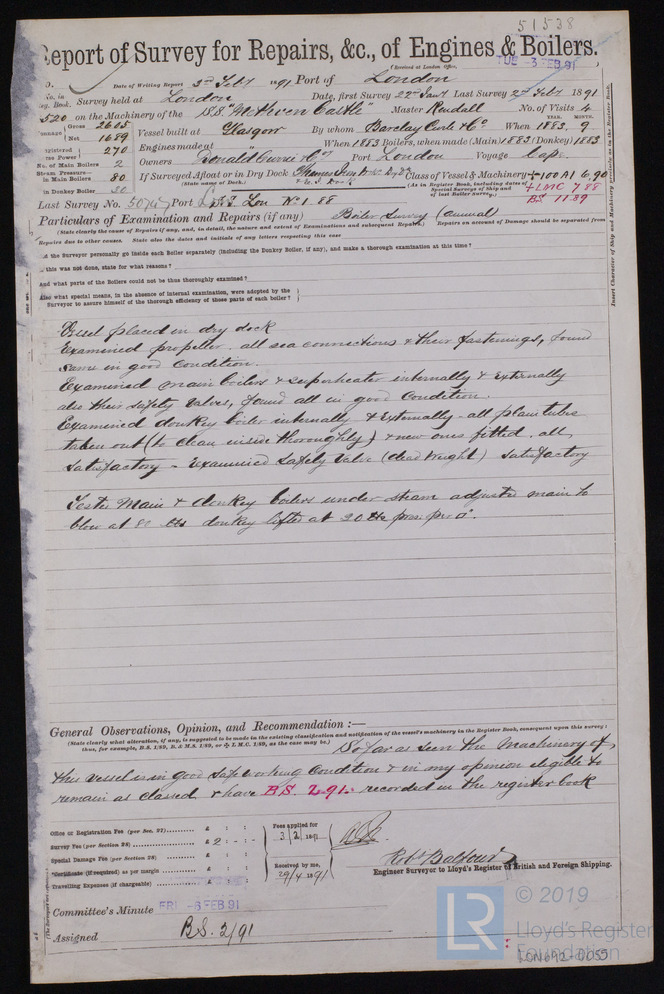 51538
Report of Survey for Repairs, &c., of Engines & Boilers.
(Received at London Office,
TUE -3 FEB 91
Date of Writing Report 3rd Feby 1891 Port of London
No. in
Reg. Book. Survey held at London Date, first Survey 22nd Jany Last Survey 2nd Feby 1891
520 on the Machinery of the S.S. "Methven Castle" Master Rendall No. of Visits 4
Tonnage Gross 2605
Net 1689
Vessel built at Glasgow By whom Barclay Curle & Co When 1883, 9
YEAR. MONTH.
Registered Horse Power 270
Engines made at " When 1883 Boilers, when made (Main) 1883 (Donkey) 1883
No. of Main Boilers 2
Owners Donald Currie & Co Port London Voyage Cape
Steam Pressure—
in Main Boilers 80
If Surveyed Afloat or in Dry Dock Thames Iron Wks Dry Dk
(State name of Dock.)
Class of Vessel & Machinery ✠100A1 6,90
(As in Register Book, including dates of Special Surveys of Ship and of last Boiler Survey.)
✠LMC 7 88
BS 11 89
in Donkey Boiler 30
Last Survey No. Port Lon No 1.88
Particulars of Examination and Repairs (if any) Boiler Survey (annual)
(State clearly the cause of Repairs if any, and, in detail, the nature and extent of Examinations and subsequent Repairs.) Repairs on account of Damage should be separated from
Repairs due to other causes. State also the dates and initials of any letters respecting this case
Did the Surveyor personally go inside each Boiler separately (including the Donkey Boiler, if any), and make a thorough examination at this time?
If this was not done, state for what reasons?
And what parts of the Boilers could not be thus thoroughly examined?
Also what special means, in the absence of internal examination, were adopted by the
Surveyor to assure himself of the thorough efficiency of those parts of each boiler?
Insert Character of Ship and Machinery precisely as in the Register Book.
Vessel placed in dry dock
Examined propeller, all sea connections & their fastenings, found
same in good condition.
Examined main boilers & superheater internally & externally
also their safety valves, found all in good condition.
Examined donkey boiler internally & externally - all plain tubes
taken out (to clean inside thoroughly) & new ones fitted, all
satisfactory - Examined safety valve (dead weight) satisfactory
Tested Main & donkey boilers under steam adjusted main to
blow at 80 lbs donkey lifted at 30 lbs pres. pr □".
General Observations, Opinion, and Recommendation:—
(State clearly what alteration, if any, is suggested to be made in the existing classification and notification of the vessel's machinery in the Register Book, consequent upon this survey;
thus, for example, B.S. 1/89, B. & M.S. 1/89, or ✠ L.M.C. 1/89, as the case may be.)
So far as seen the Machinery of
this vessel is in good safe working condition & in my opinion eligible to
remain as classed & have B.S. 2,91. recorded in the register book
Office or Registration Fee (per Sec. 27) £ : :
Survey Fee (per Section 28) £ 2 : - : -
Special Damage Fee (per Section 28) £ : :
*Certificate (if required) as per margin £ : :
Travelling Expenses (if chargeable) £ : :
Fees applied for
3/2/1891
Received by me,
29/4/1891
Robt Balfour
Engineer Surveyor to Lloyd's Register of British and Foreign Shipping.
Committee's Minute FRI -6 FEB 91
Assigned B.S. 2/91
LR
© 2019
Lloyd's Register
Foundation
LON692-0055